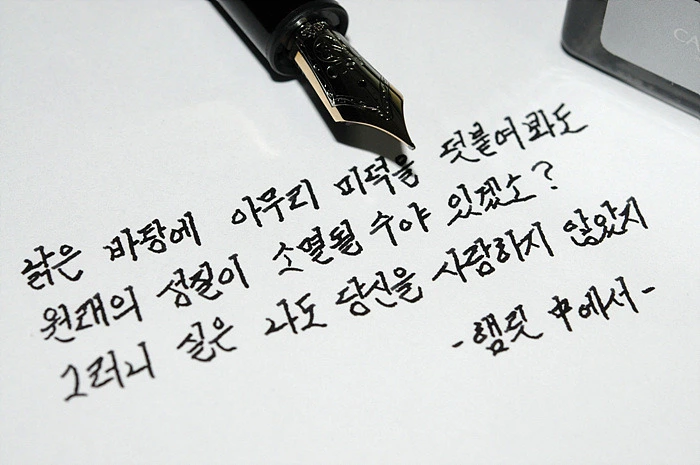 낡은 바탕에 아무리 미덕을 덧붙여봐도
원래의 성질이 소멸될 수야 있겠소?
그러니 실은 나도 당신을 사랑하지 않았지
-햄릿 中에서-